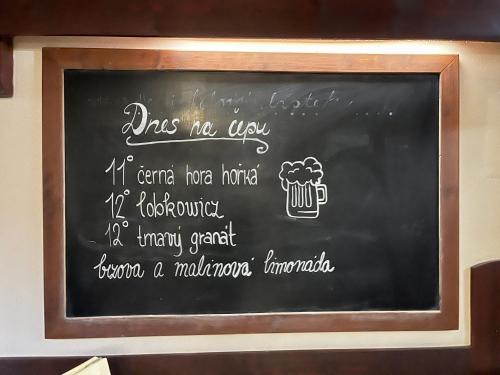 Dnes na čepu
11° černá hora hořká
12° lobkowicz
12° tmavý granát
bzova a malinová limonáda